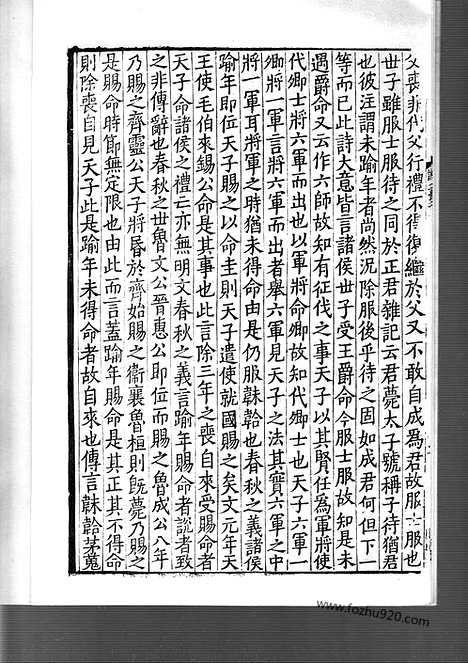 父喪非代父行禮不得復繼於父又不敢自成爲君故服士服也
世子雖服士服待之同於正君雜記云君薨太子號稱子待猶君
也彼注謂未踰年者尚然況除服後乎待之固如成君何但下一
等而已此詩大意皆言諸侯世子受王爵命今服士服故知是未
遇爵命又云作六師故知有征伐之事天子以其賢任爲軍將使
代卿士將六軍而出也以軍將命卿故知代卿士也天子六軍一
卿將一軍言將六軍而出者舉六軍見天子之法其實六軍之中
將一軍耳將軍之時猶未得命由是仍服韎韐也春秋之義諸侯
踰年即位天子賜之以命圭則天子遣使就國賜之矣文元年天
王使毛伯來錫公命是其事也此言除三年之喪自來受賜命者
天子命諸侯之禮云亦無明文春秋之義言踰年賜命者說者致
之非傳辭也春秋之世魯文公晉惠公即位而賜之魯成公八年
乃賜之齊靈公天子將昏於齊始賜之衞襄魯桓則旣薨乃賜之
是賜命時節無定限也由此而言蓋踰年賜命是其正其不得命
則除喪自見天子此是踰年未得命者故自來也傳言韎韐茅蒐
www.fozhu920.com